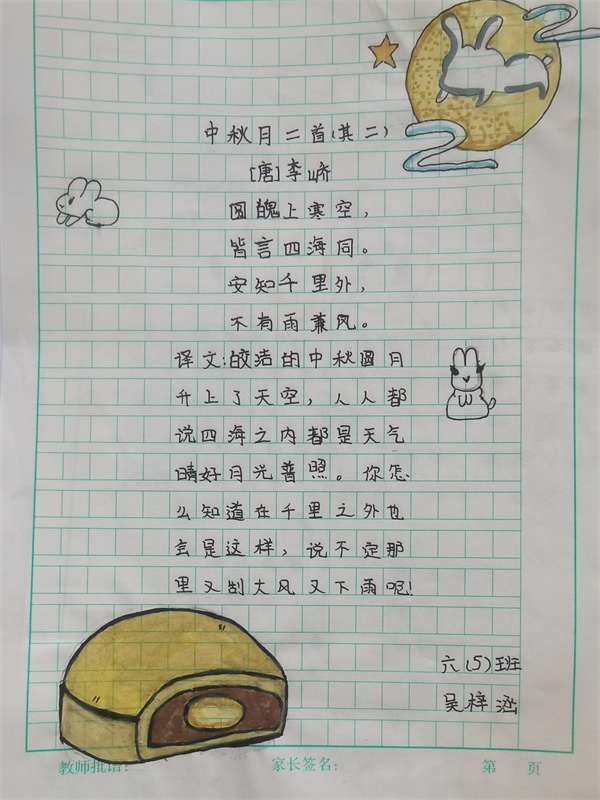 中秋月二首(其二)
[唐]李峤
圆魄上寒空，
皆言四海同。
安知千里外，
不有雨兼风。
译文:皎洁的中秋圆月
升上了天空，人人都
说四海之内都是天气
晴好月光普照。你怎
么知道在千里之外也
会是这样，说不定那
里又刮大风又下雨呢!
六(5)班
吴梓涵
教师批语：
家长签名：
第 页